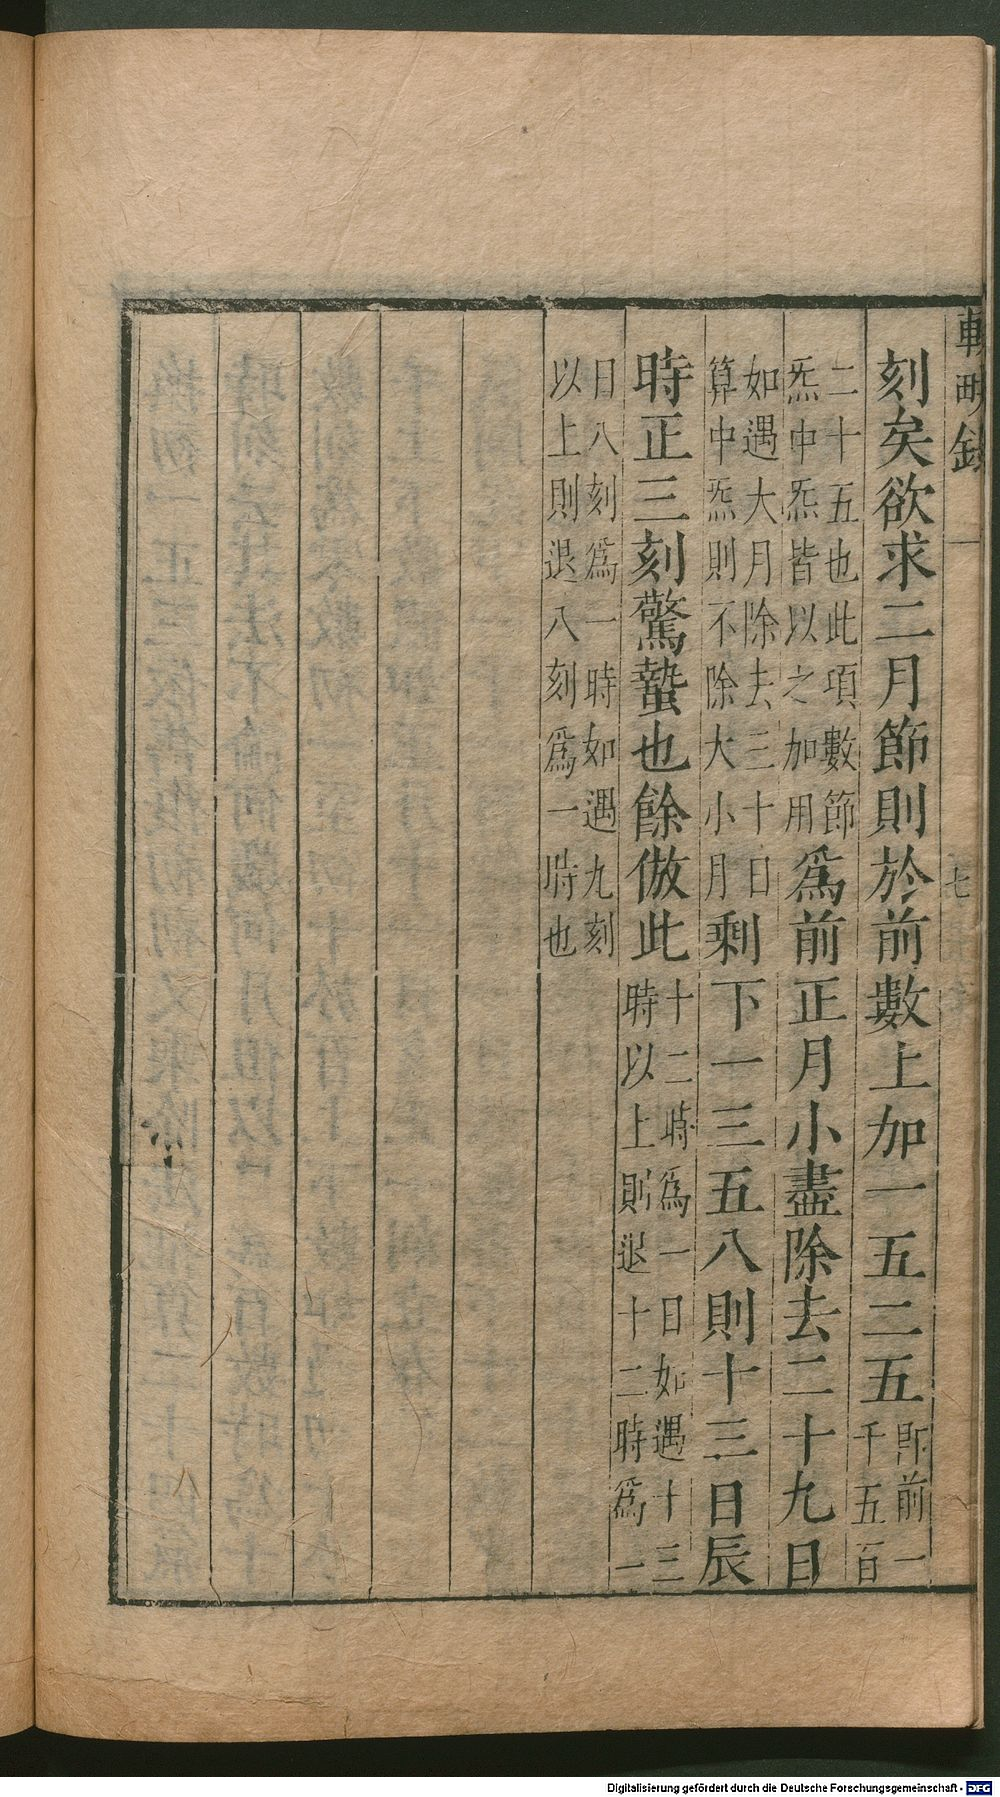 輟畊錄 一
七
刻矣欲求二月節則於前數上加一五二五即前一千五百
二十五也此項數節炁中炁皆以之加用爲前正月小盡除去二十九日
如遇大月除去三十日算中炁則不除大小月剩下一三五八則十三日辰
時正三刻驚蟄也餘倣此十二時爲一日如遇十三時以上則退十二時爲一
日八刻爲一時如遇九刻以上則退八刻爲一時也
Digitalisierung gefördert durch die Deutsche Forschungsgemeinschaft - DFG